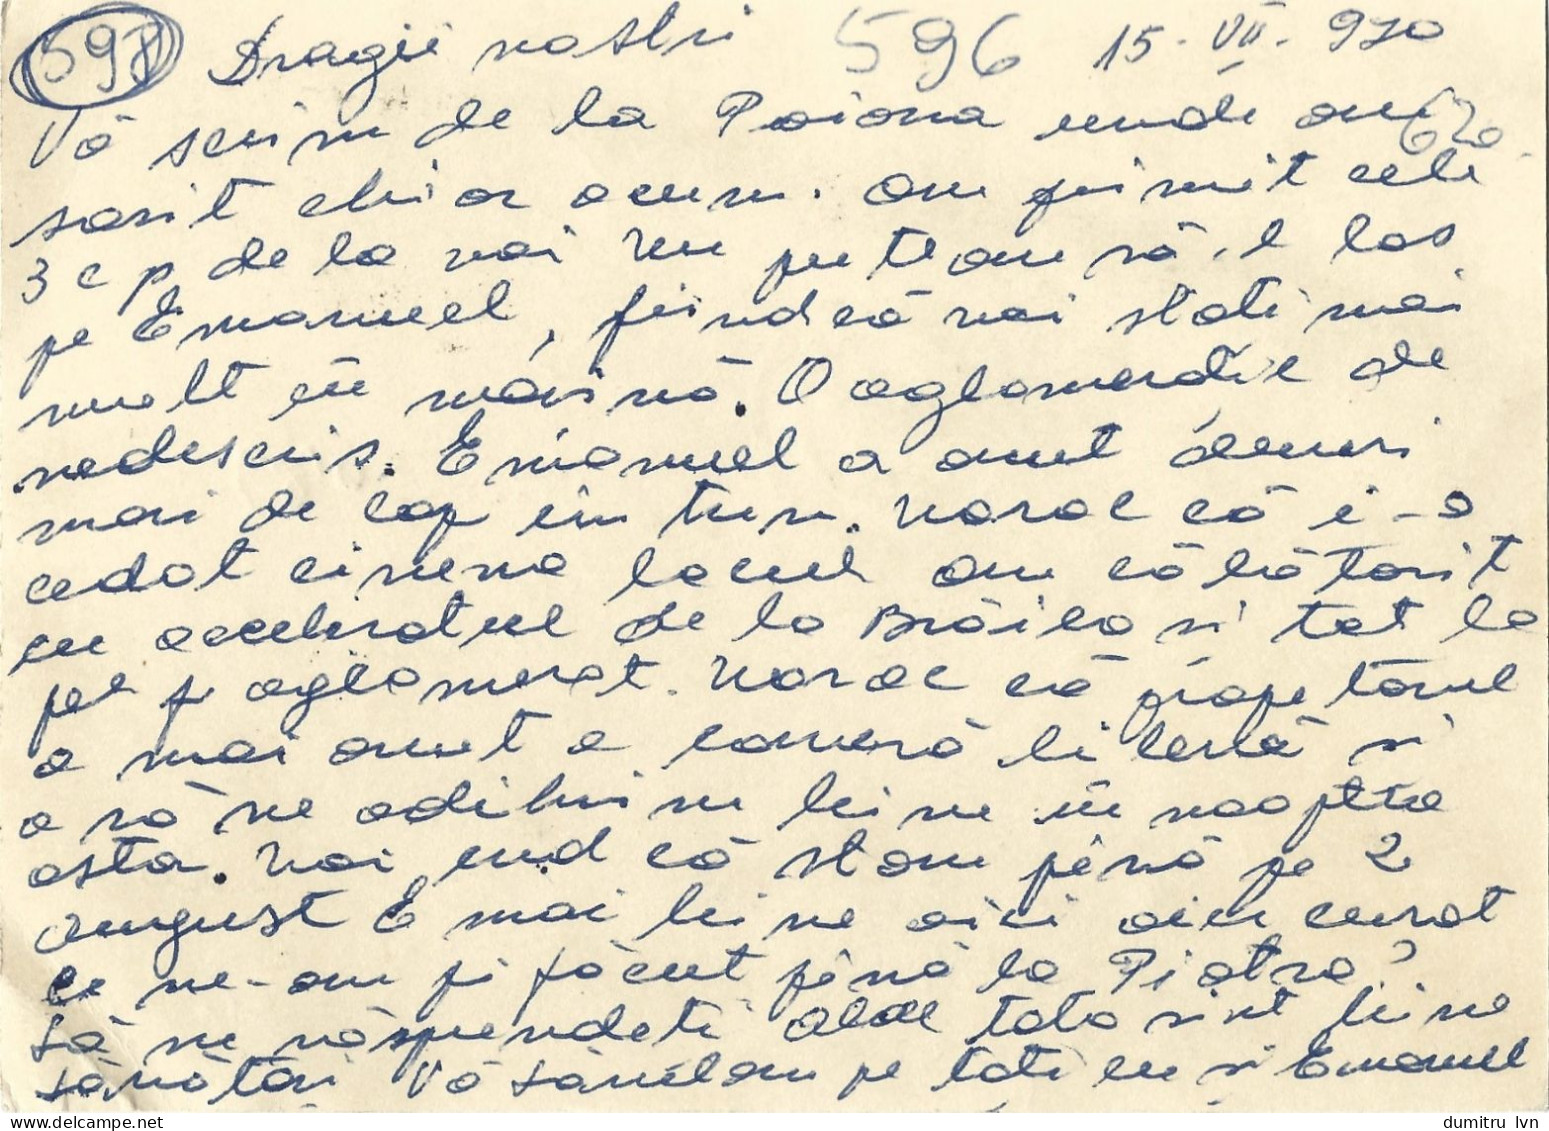 597 Dragii nostri 596 15-VII-970
Vă scrim de la Poiana unde am
sosit chiar acum. Am primit cele
3 c p de la voi Nu puteam să-l las
pe Emanuel, fiindcă noi stati mai
mult în mâină. O aglomeratie de
nedescris. Emanuel a avut dureri
mari de cap în tren. Noroc că i-a
cedat cineva locul am călătorit
cu acceleratul de la Brăila si tot la
fel f aglomerat. Noroc că propetarul
a mai avut o cameră liberă si
o să ne odihnim bine în noaptea
asta. Noi cred că stam până pe 2
august E mai bine aici aer curat
ce ne-am fi făcut până la Piatra?
Să ne răspundeti toto sint bine
sănătosi Vă sărutam pe toti eu si Emanuel
dumitru lvn